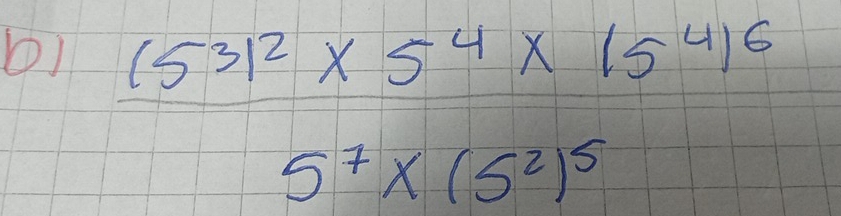 b) (5³)² x 5⁴ x (5⁴)⁶
5⁷ x (5²)⁵